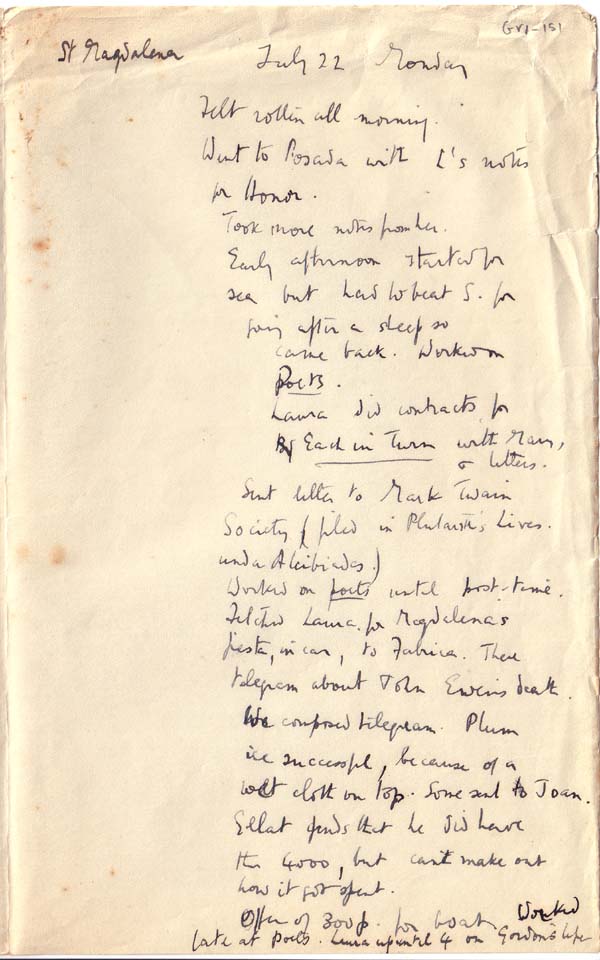 GVI-151
St Magdalena
July 22 Monday
Felt rotten all morning.
Went to Posada with L's notes
for Honor.
Took more notes from her.
Early afternoon started for
sea but had to beat S. for
going after a sleep so
came back. Worked on
poets.
Laura did contracts for
Each in Turn with Mary,
& letters.
Sent letter to Mark Twain
Society (filed in Plutarch's Lives.
under Alcibiades.)
Worked on poets until post-time.
Fetched Laura, for Magdalena's
fiesta, in car, to Fabrica. There
telegram about John Ewen's death.
We composed telegram. Plum
ice successful, because of a
wet cloth on top. Some sent to Joan.
finds that he did have
the 4000, but can't make out
how it got spent.
Offer of 300p. for boat. Worked
late at Poets. Laura up until 4 on Gordon's life